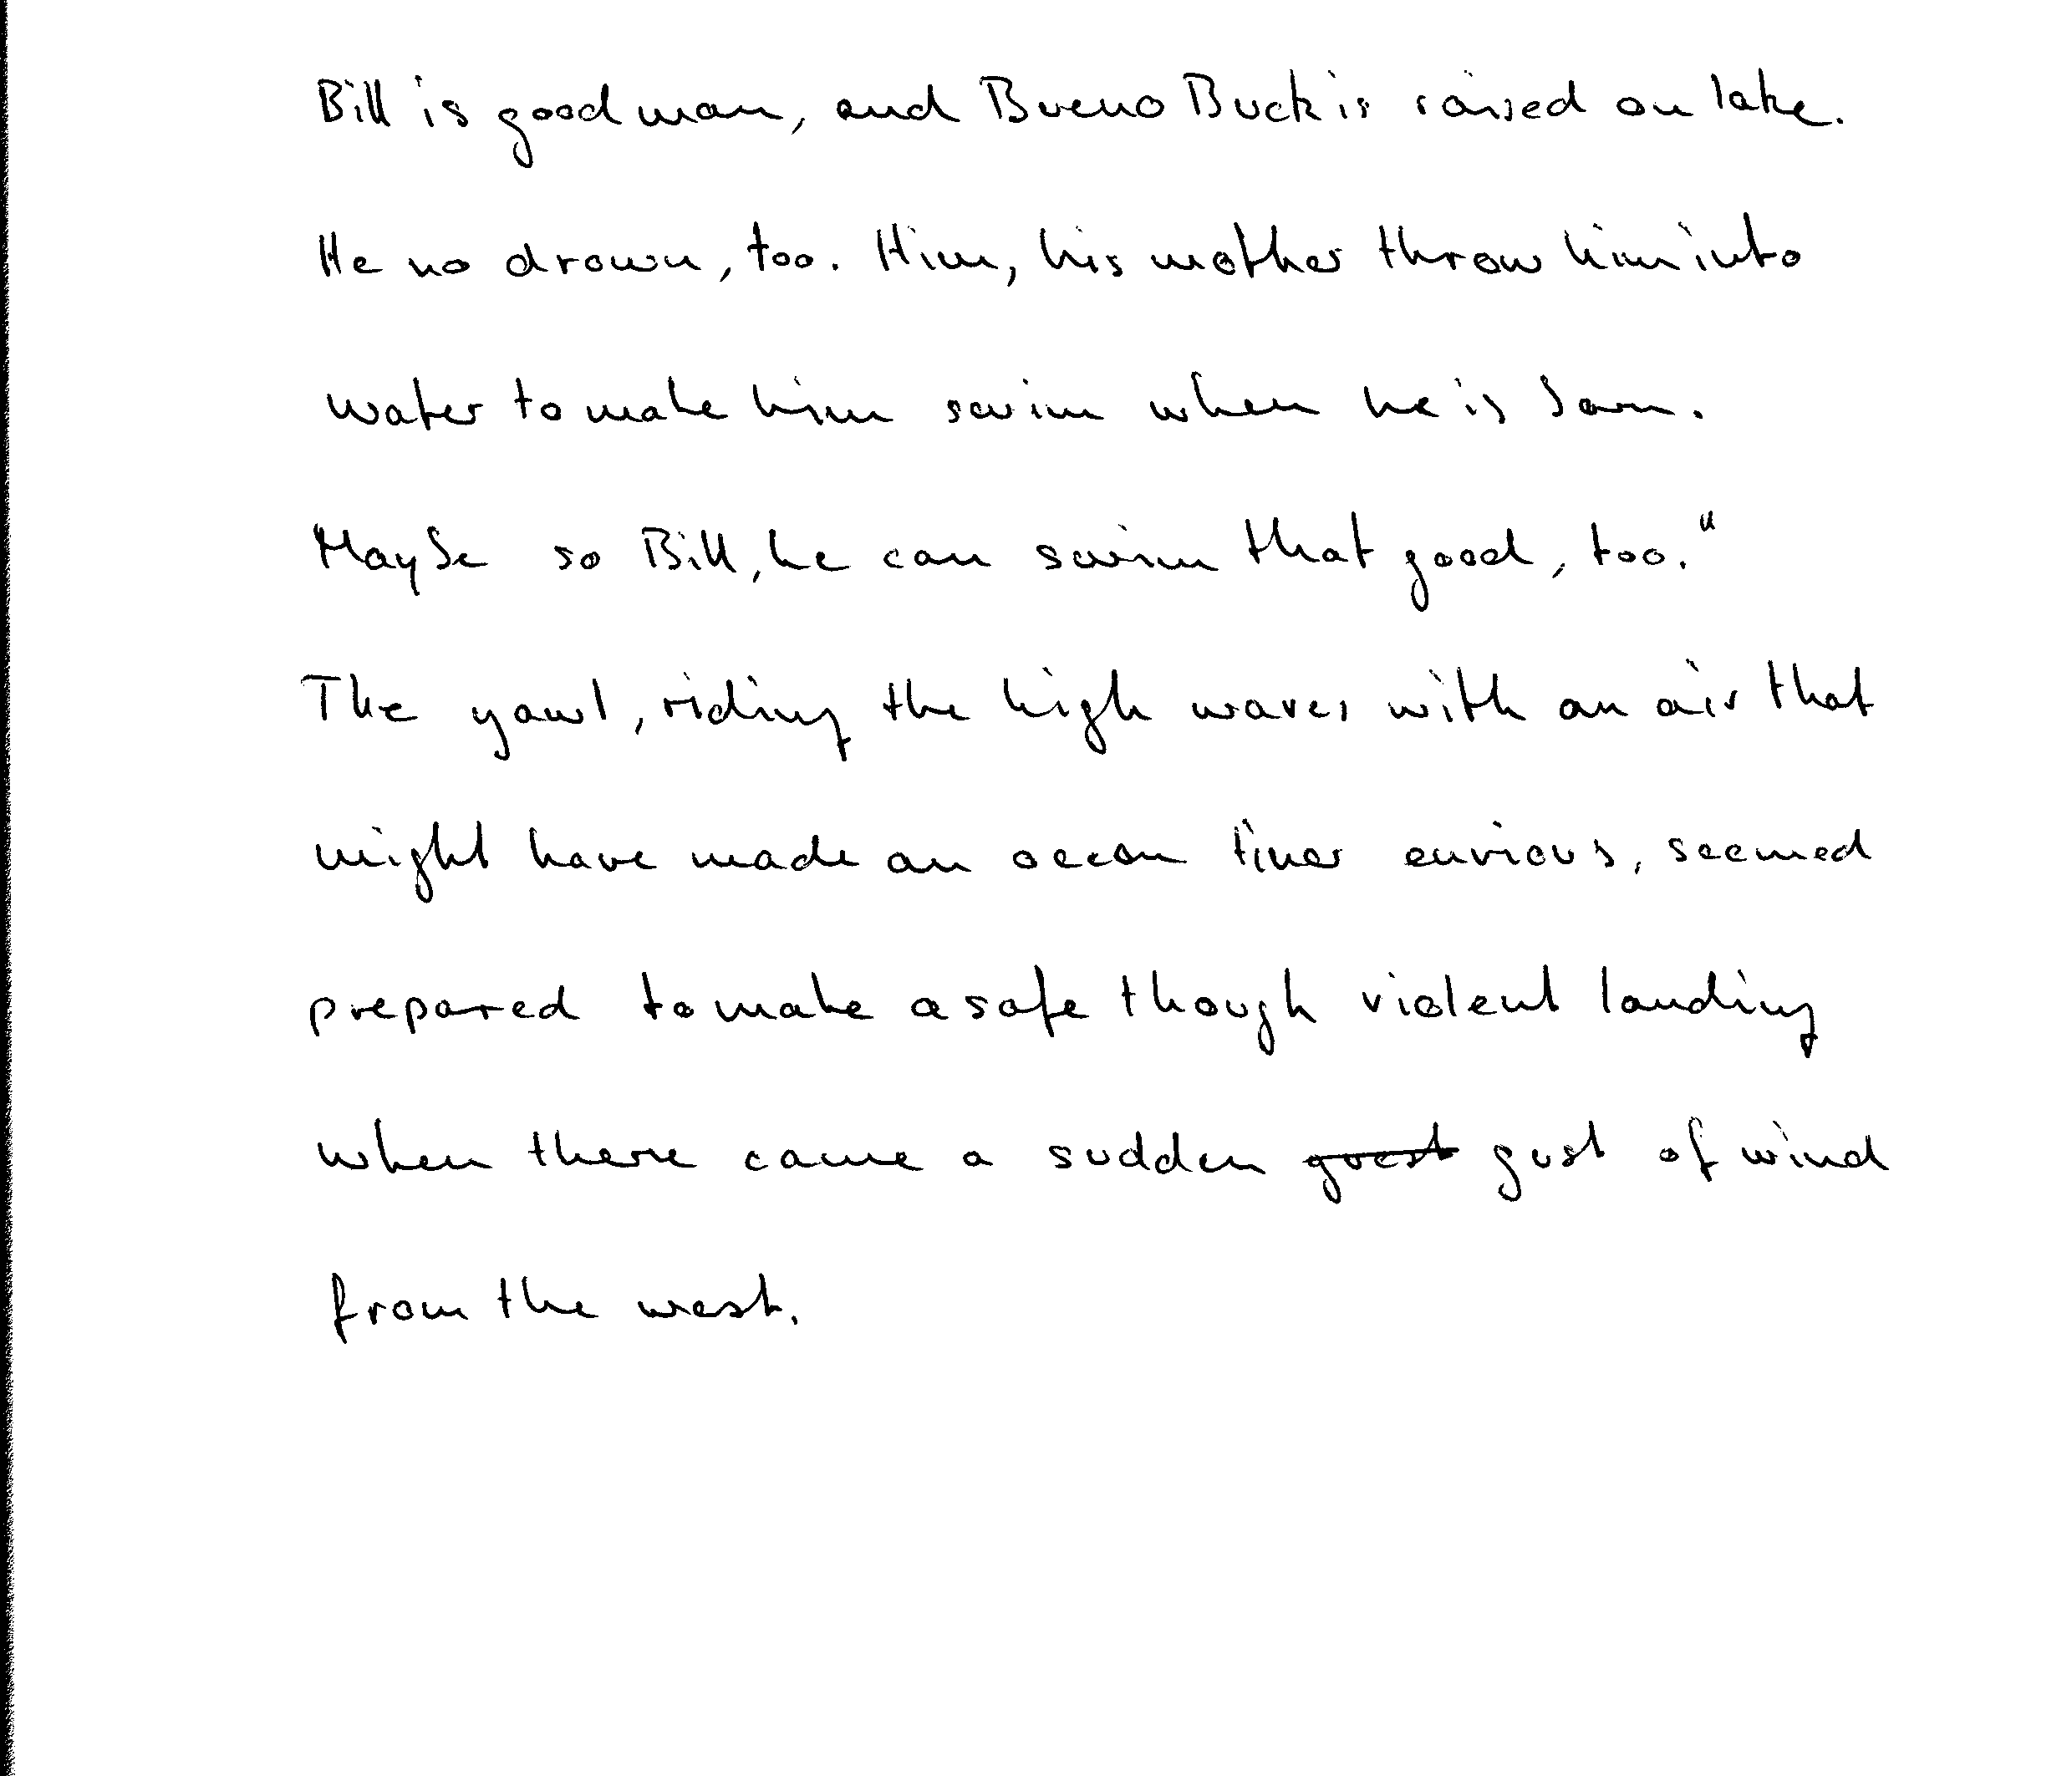 Bill is good man, and Bueno Buck is raised on lake.
He no drown, too. Him, his mother throw him into
water to make him swim when he is born.
Maybe so Bill, he can swim that good, too."
The yawl, riding the high waves with an air that
might have made an ocean liner envious, seemed
prepared to make a safe though violent landing
when there came a sudden gust of wind
from the west.